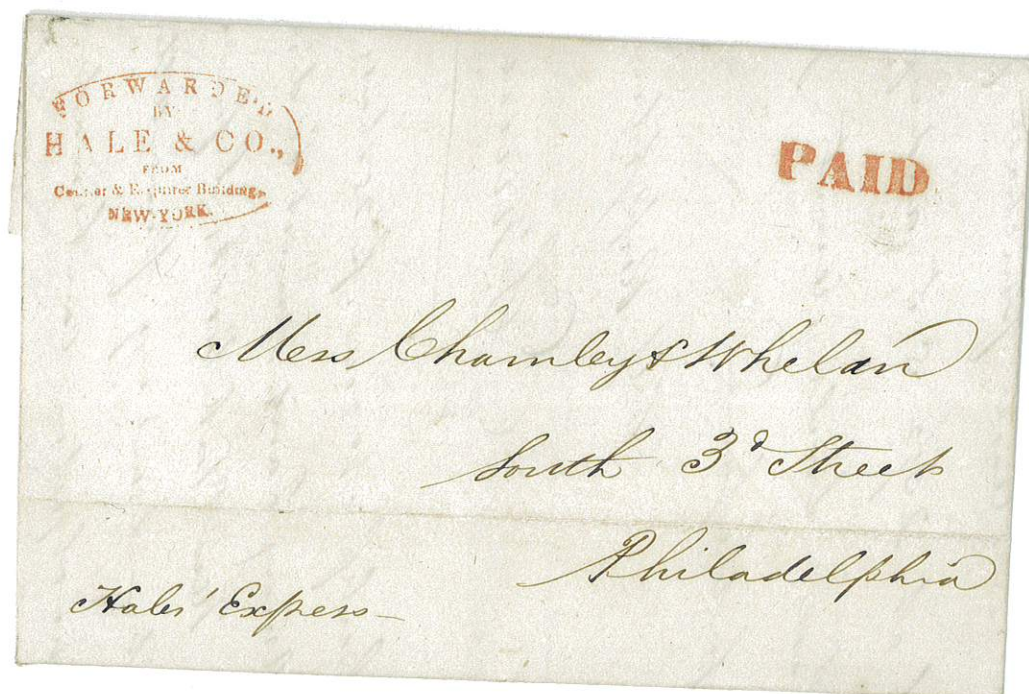 FORWARDED
BY
HALE & CO.,
FROM
Courier & Enquirer Buildings,
NEW-YORK.
PAID
Mess Chamley & Whelan
South 3d Street
Philadelphia
Hales' Express